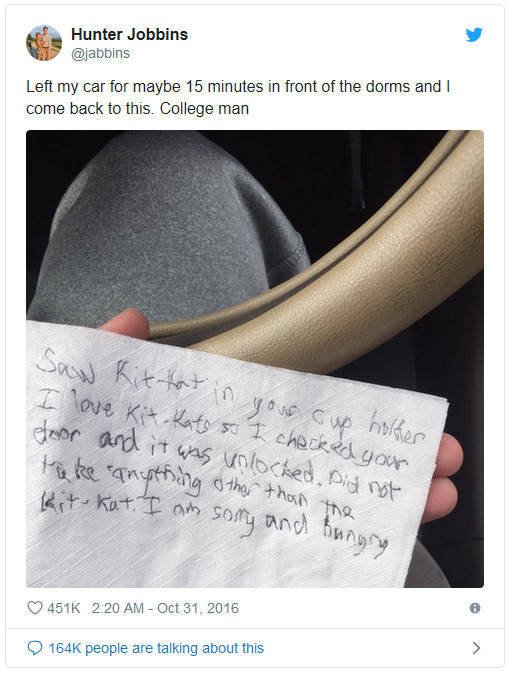 Hunter Jobbins
@jabbins
Left my car for maybe 15 minutes in front of the dorms and I
come back to this. College man
Saw Kit-Kat in your cup holder
I love Kit-Kats so I checked your
door and it was unlocked. Did not
take anything other than the
Kit-Kat. I am sorry and hungry
451K 2:20 AM - Oct 31, 2016
164K people are talking about this